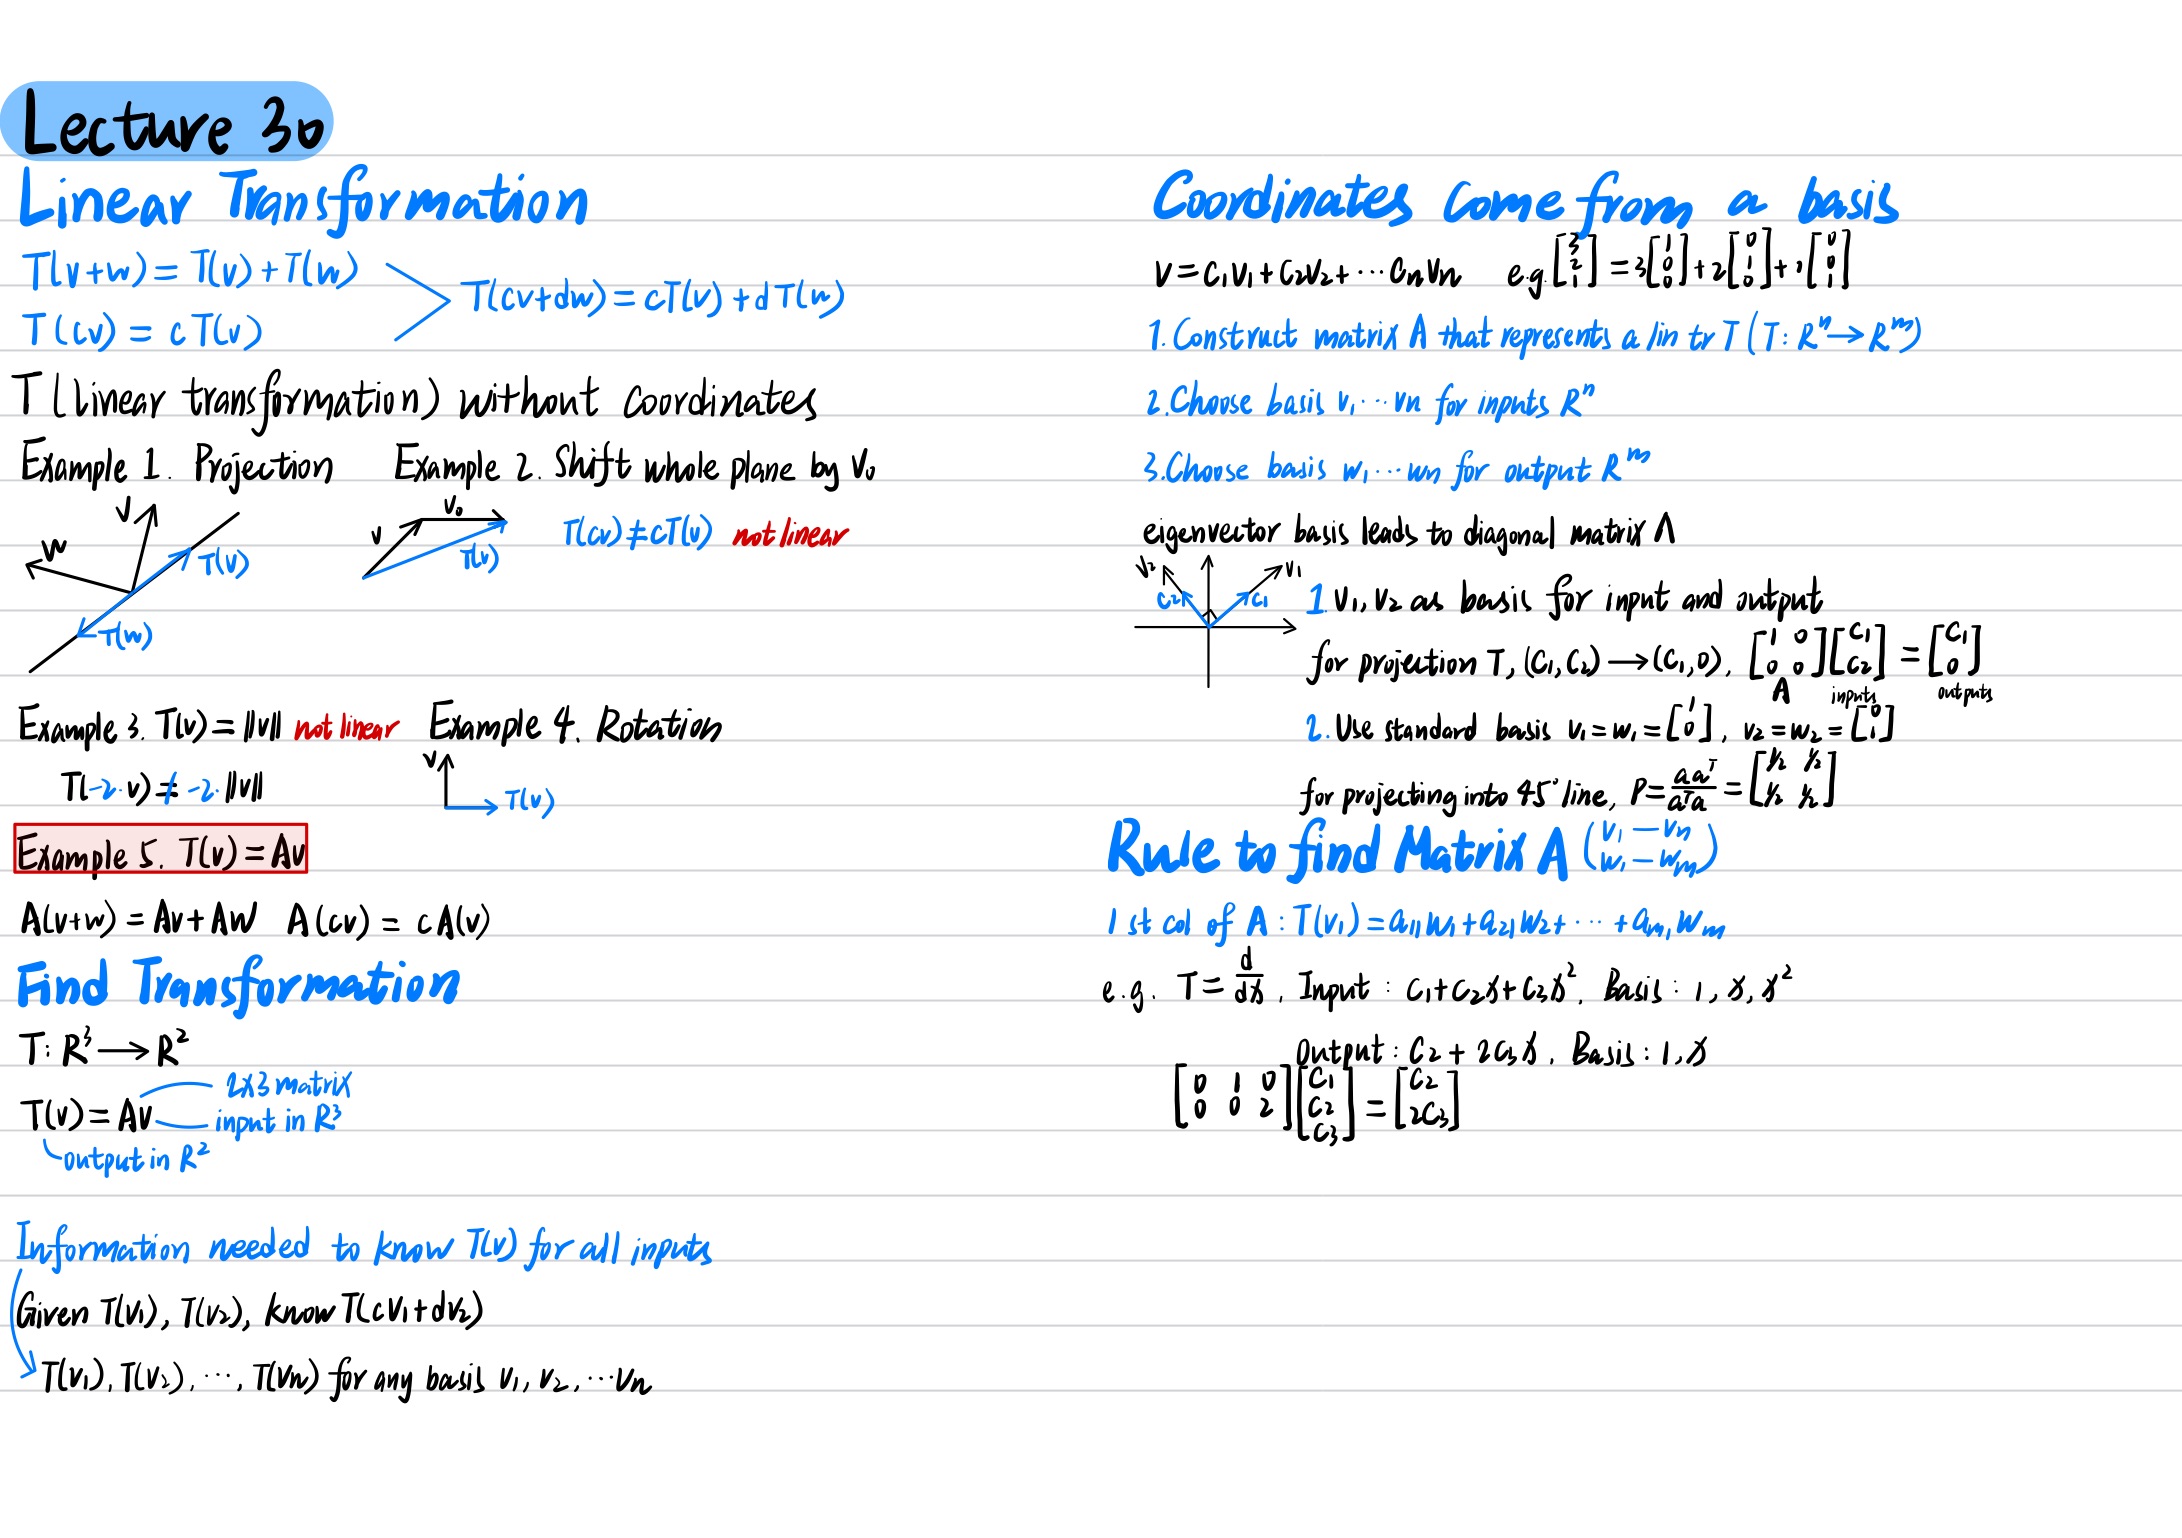 Lecture 30
Linear Transformation
T(v+w) = T(v) + T(w)
T(cv) = cT(v)
T(cv+dw) = cT(v) + dT(w)
T (linear transformation) without coordinates
Example 1. Projection
v
w
T(v)
T(w)
Example 2. Shift whole plane by v₀
v₀
v
T(v)
T(cv) ≠ cT(v) not linear
Example 3. T(v) = ||v|| not linear
T(-2·v) ≠ -2·||v||
Example 4. Rotation
v
T(v)
Example 5. T(v) = Av
A(v+w) = Av + Aw A(cv) = cA(v)
Find Transformation
T: R³ → R²
T(v) = Av
2x3 matrix
input in R³
output in R²
Information needed to know T(v) for all inputs
Given T(v₁), T(v₂), know T(cv₁+dv₂)
T(v₁), T(v₂), ..., T(vn) for any basis v₁, v₂, ...vn
Coordinates come from a basis
v = c₁v₁ + c₂v₂ + ... cnvn e.g. [3 2 1] = 3[1 0 0] + 2[0 1 0] + 1[0 0 1]
1. Construct matrix A that represents a lin tr T (T: Rⁿ → Rᵐ)
2. Choose basis v₁ ... vn for inputs Rⁿ
3. Choose basis w₁ ... wn for output Rᵐ
eigenvector basis leads to diagonal matrix Λ
v₂
v₁
c₂
c₁
1. v₁, v₂ as basis for input and output
for projection T, (c₁, c₂) → (c₁, 0), [1 0; 0 0] [c₁; c₂] = [c₁; 0]
A inputs outputs
2. Use standard basis v₁ = w₁ = [1; 0], v₂ = w₂ = [0; 1]
for projecting into 45° line, P = aaᵀ/aᵀa = [½ ½; ½ ½]
Rule to find Matrix A (v₁ — vn
w₁ — wm)
1st col of A : T(v₁) = a₁₁w₁ + a₂₁w₂ + ... + am₁wm
e.g. T = d/dx, Input : c₁+c₂x+c₃x², Basis : 1, x, x²
Output : c₂ + 2c₃x, Basis : 1, x
[0 1 0; 0 0 2] [c₁; c₂; c₃] = [c₂; 2c₃]